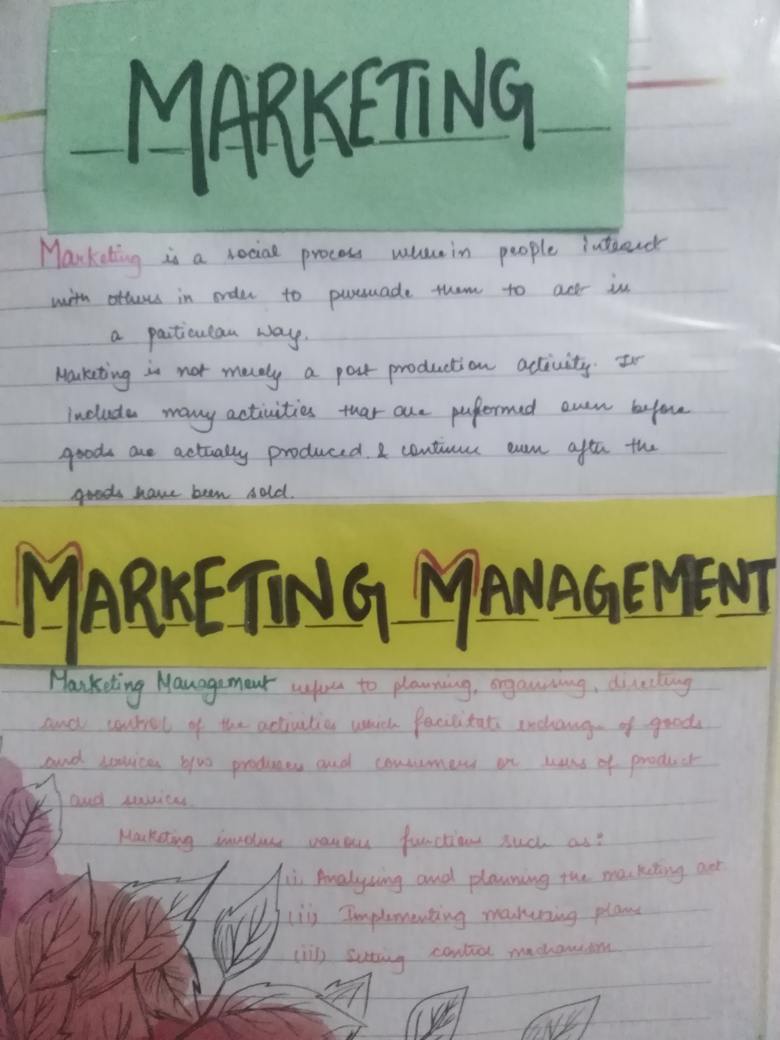 MARKETING
Marketing is a social process wherein people interact
with others in order to pursuade them to act in
a particular way.
Marketing is not merely a post production activity. It
includes many activities that are performed even before
goods are actually produced & continue even after the
goods have been sold.
MARKETING MANAGEMENT
Marketing Management refers to planning, organising, directing
and control of the activities which facilitate exchange of goods
and services b/w producers and consumers or users of product
and services.
Marketing involves various functions such as:
(i) Analysing and planning the marketing act
(ii) Implementing marketing plans
(iii) Setting control mechanism